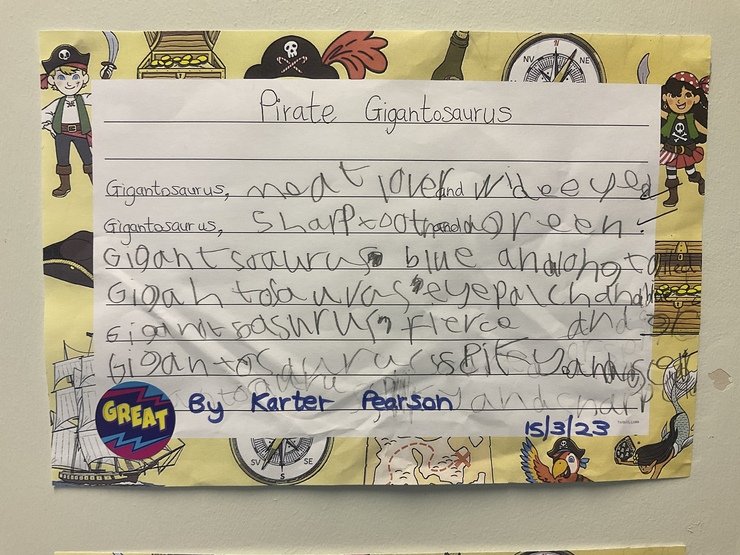 NV NE
Pirate Gigantosaurus
Gigantosaurus, meat lover and wide eyed
Gigantosaurus, sharp tooth and green
Gigantsoaurus blue and long
Gigahtosauras eyepatch and
Giganitsoasurus fierce and
Gigantosaurus spiky and
and sharp
GREAT
By Karter Pearson
15/3/23
SV S SE